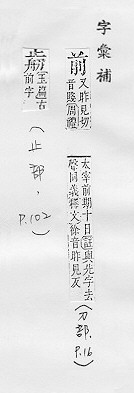 字彙補
前
又昨見切
音賤周禮
太宰前期十日註與先字去
聲同義釋文徐音昨見反
(刀部, P.16)
玉篇古
前字
(止部, P.102)